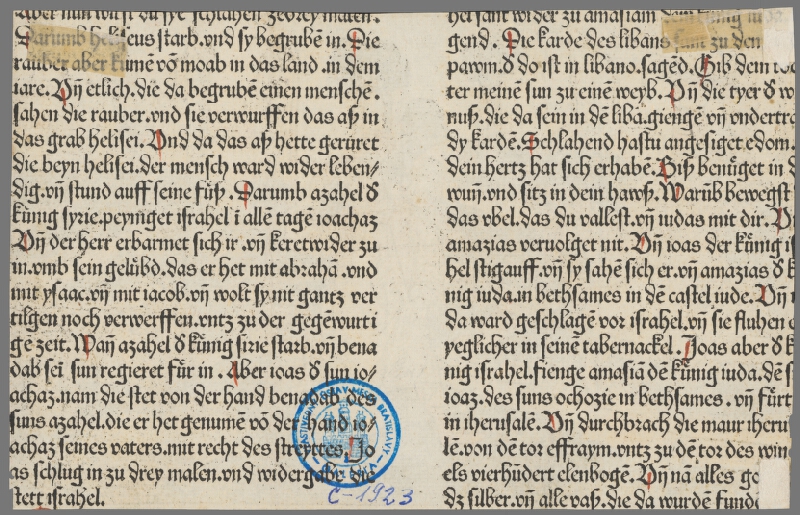 Aber nun wirst du sye schlahen zedrey malen.
Darumb heliseus starb.vnd sy begrubē in. Die
rauber aber kumē vō moab in das land.in dem
iare. Vn̄ etlich.die da begrubē einen menschē.
sahen die rauber.vnd sie verwurffen das aß in
das grab helisei. Vnd da das aß hette gerüret
die beyn helisei.der mensch ward wider leben⸗
dig.vn̄ stund auff seine füß. Darumb azahel d̕
künig syrie.peyniget israhel ī allē tagē ioachaz
Vn̄ der herr erbarmet sich ir.vn̄ keretwider zu
in.vmb sein gelübd.das er het mit abrahā.vnd
mit ysaac.vn̄ mit iacob.vn̄ wolt sy nit gantz ver
tilgen noch verwerffen.vntz zu der gegēwurti
gē zeit. Wan̄ azahel d̕ künig sirie starb.vn̄ bena
dab sei sun regieret für in. Aber ioas d̕ sun io⸗
achaz.nam die stet von der hand benadab des
suns azahel.die er het genumē vō der hand io⸗
achaz seines vaters.mit recht des streyttes. Jo
as schlug in zu drey malen.vnd widergabe die
stett israhel.
hel sant wider zu amasiam dem künig iuda
gend. Die karde des libans sant zu den
pawm.d̕ do ist in libano.sagēd. Gib dein
ter meinē sun zu einē weyb. Vn̄ die tyer d̕ w
nuß.die da sein in dē libā.giengē vn̄ vndertra
dy kardē. Schlahend hastu angesiget edom.
dein hertz hat sich erhabē. Biß benüget in d
wun̄.vnd sitz in dein hawß. Warūb bewegst
das vbel.das du vallest.vn̄ iudas mit dir. V
amazias veruolget nit. Vn̄ ioas der künig is
hel stigauff.vn̄ sy sahē sich er.vn̄ amazias d̕ k
nig iuda.in bethsames in dē castel iude. Vn̄
da ward geschlagē vor israhel.vn̄ sie fluhen
yeglicher in seinē tabernackel. Joas aber d̕ k
nig israhel.fienge amasiā dē künig iuda.dē s
ioaz.des suns ochozie in bethsames.vn̄ fürt
in iherusalē. Vn̄ durchbrach die maur iheru
lē.von dē tor effraym.vntz zu dē tor des win
els vierhūdert elenbogē. Vn̄ nā alles go
dz silber.vn̄ alle vaß.die da wurdē fund
C-1923